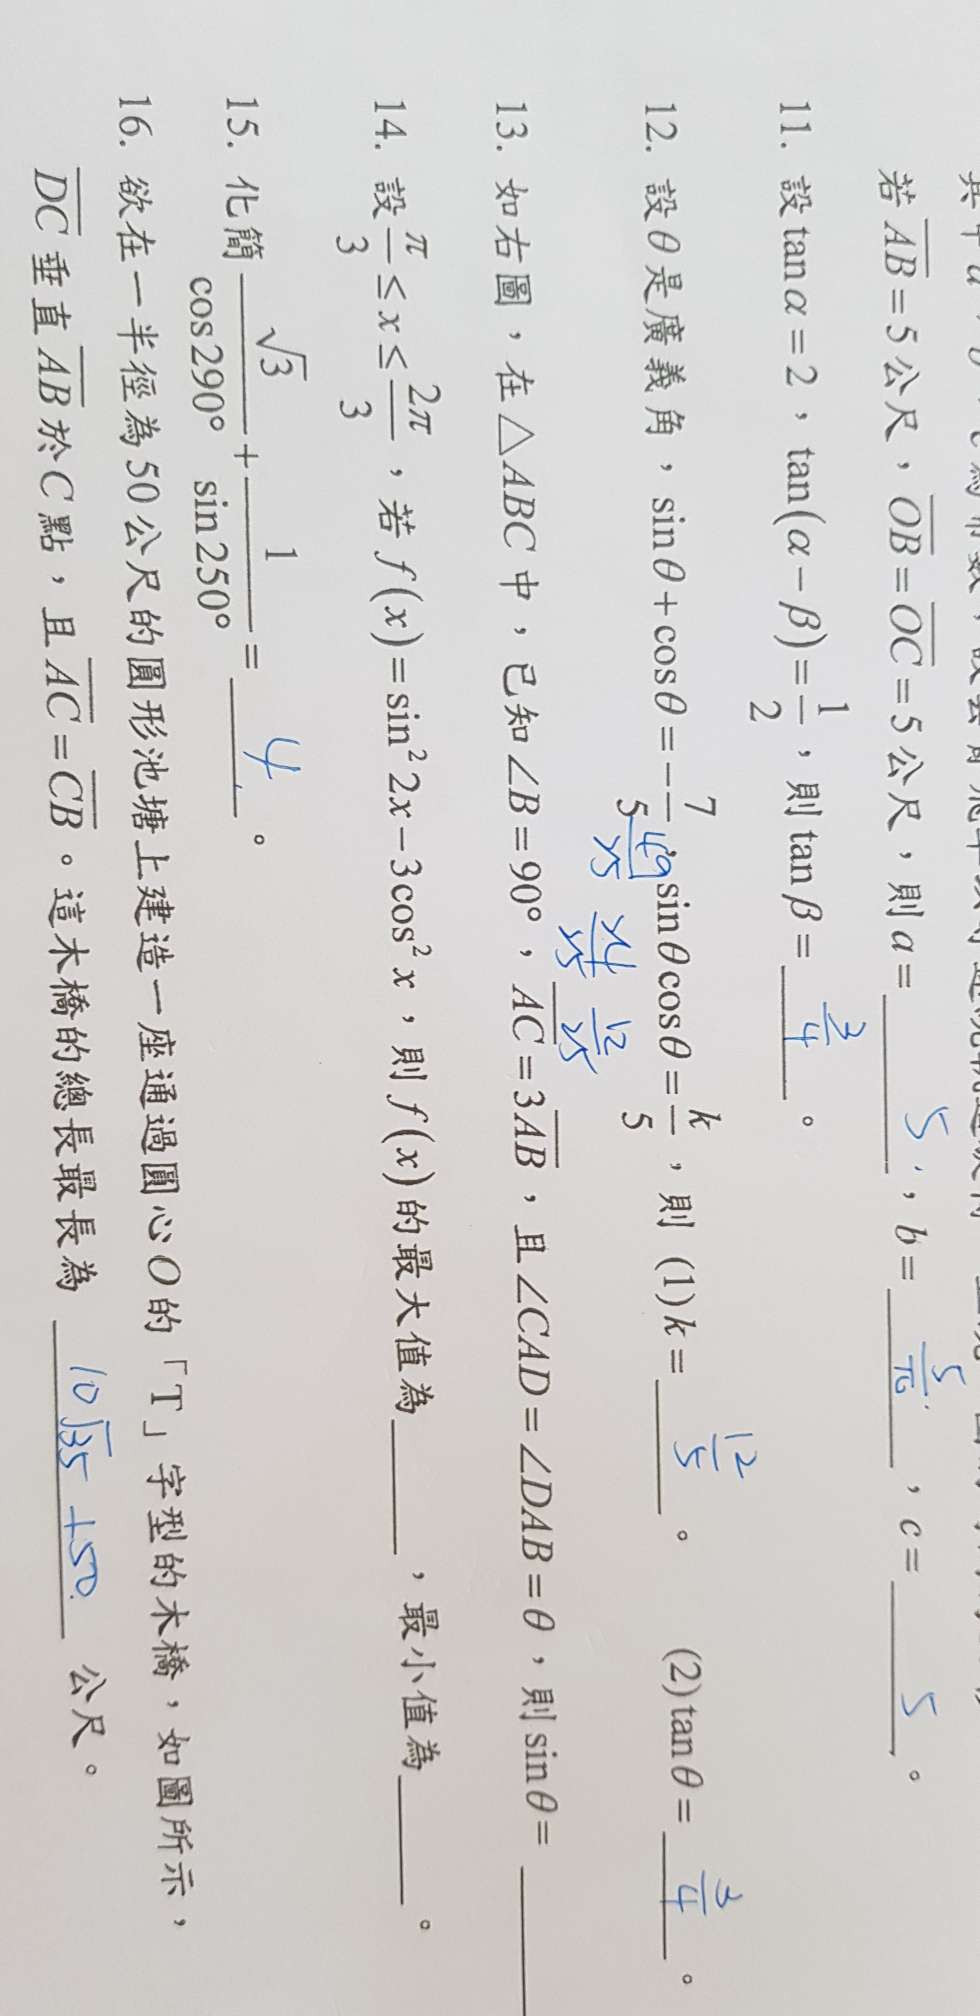 若 AB = 5 公尺，OB = OC = 5 公尺，則 a = 5，b = 5/π，c = 5。
11. 設 tanα = 2，tan(α − β) = 1/2，則 tanβ = 3/4。
12. 設 θ 是廣義角，sinθ + cosθ = −7/5，sinθcosθ = k/5，則 (1) k = 12/5。 (2) tanθ = 3/4。
49/25 24/25 12/25
13. 如右圖，在 △ABC 中，已知 ∠B = 90°，AC = 3AB，且 ∠CAD = ∠DAB = θ，則 sinθ =
14. 設 π/3 ≤ x ≤ 2π/3，若 f(x) = sin² 2x − 3cos² x，則 f(x) 的最大值為____，最小值為____。
15. 化簡 √3/cos290° + 1/sin250° = 4。
16. 欲在一半徑為 50 公尺的圓形池塘上建造一座通過圓心 O 的「T」字型的木橋，如圖所示，
DC 垂直 AB 於 C 點，且 AC = CB。這木橋的總長最長為 10√35 + 50 公尺。